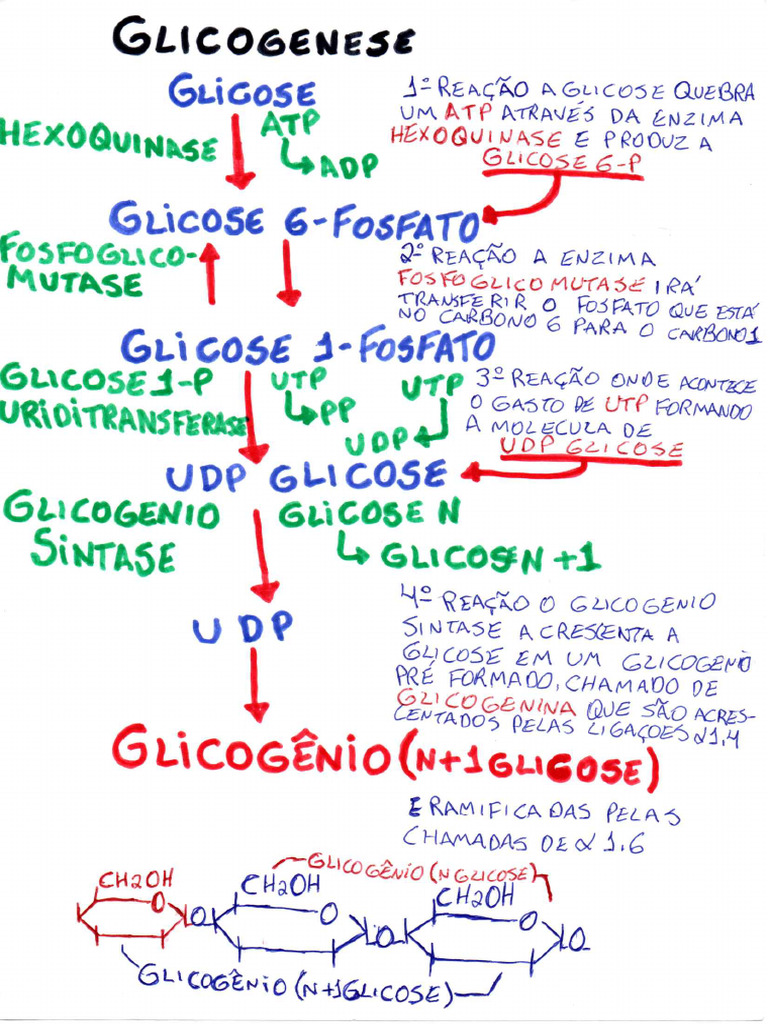 GLICOGENESE
GLICOSE
HEXOQUINASE
ATP
ADP
1º REAÇÃO A GLICOSE QUEBRA
UM ATP ATRAVÉS DA ENZIMA
HEXOQUINASE E PRODUZ A
GLICOSE 6-P
GLICOSE 6-FOSFATO
FOSFOGLICO-
MUTASE
2º REAÇÃO A ENZIMA
FOSFOGLICOMUTASE IRÁ
TRANSFERIR O FOSFATO QUE ESTÁ
NO CARBONO 6 PARA O CARBONO 1
GLICOSE 1-FOSFATO
GLICOSE 1-P
URIDITRANSFERASE
UTP
PP
UTP
UDP
3º REAÇÃO ONDE ACONTECE
O GASTO DE UTP FORMANDO
A MOLECULA DE
UDP GLICOSE
UDP GLICOSE
GLICOGENIO
SINTASE
GLICOSE N
GLICOSEN +1
4º REAÇÃO O GLICOGENIO
SINTASE ACRESCENTA A
GLICOSE EM UM GLICOGENIO
PRÉ FORMADO, CHAMADO DE
GLICOGENINA QUE SÃO ACRES-
CENTADOS PELAS LIGAÇOES α1,4
UDP
GLICOGÊNIO (N+1GLICOSE)
E RAMIFICADAS PELAS
CHAMADAS DE α 1,6
GLICOGÊNIO (N GLICOSE)
CH2OH
CH2OH
CH2OH
O
O
O
O
O
O
GLICOGÊNIO (N+1GLICOSE)